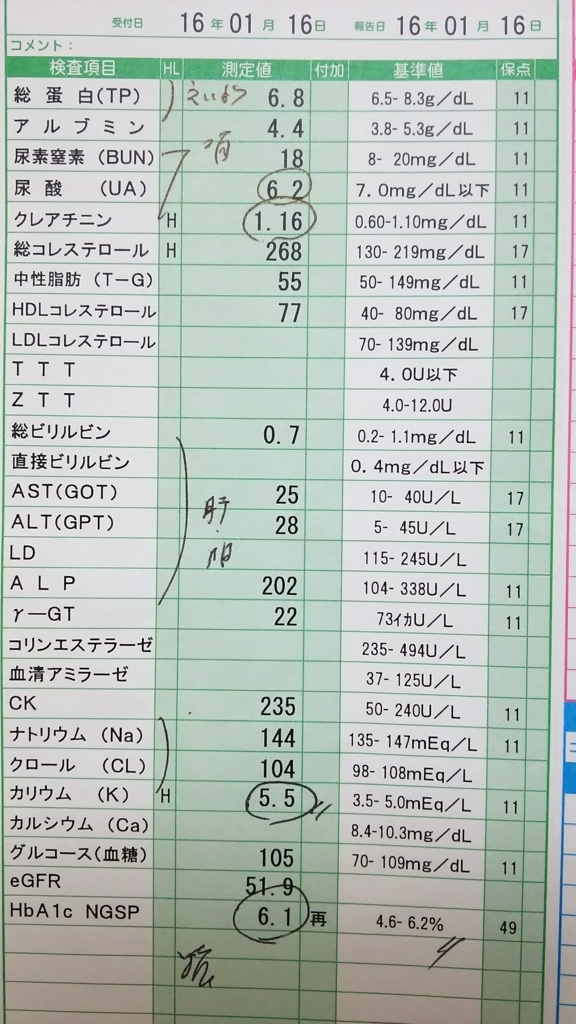 受付日 16年01月16日 報告日 16年01月16日
コメント：
検査項目 HL 測定値 付加 基準値 保点
総蛋白(TP) えいよう 6.8 6.5-8.3g/dL 11
アルブミン 4.4 3.8-5.3g/dL 11
尿素窒素(BUN) 18 8-20mg/dL 11
尿酸(UA) 6.2 7.0mg/dL以下 11
クレアチニン H 1.16 0.60-1.10mg/dL 11
総コレステロール H 268 130-219mg/dL 17
中性脂肪(T-G) 55 50-149mg/dL 11
HDLコレステロール 77 40-80mg/dL 17
LDLコレステロール 70-139mg/dL
TTT 4.0U以下
ZTT 4.0-12.0U
総ビリルビン 0.7 0.2-1.1mg/dL 11
直接ビリルビン 0.4mg/dL以下
AST(GOT) 25 10-40U/L 17
肝
ALT(GPT) 28 5-45U/L 17
LD 115-245U/L
ALP 202 104-338U/L 11
γ-GT 22 73イカU/L 11
コリンエステラーゼ 235-494U/L
血清アミラーゼ 37-125U/L
CK 235 50-240U/L 11
ナトリウム(Na) 144 135-147mEq/L 11
クロール(CL) 104 98-108mEq/L
カリウム(K) H 5.5 3.5-5.0mEq/L 11
カルシウム(Ca) 8.4-10.3mg/dL
グルコース(血糖) 105 70-109mg/dL 11
eGFR 51.9
HbA1c NGSP 6.1 再 4.6-6.2% 49